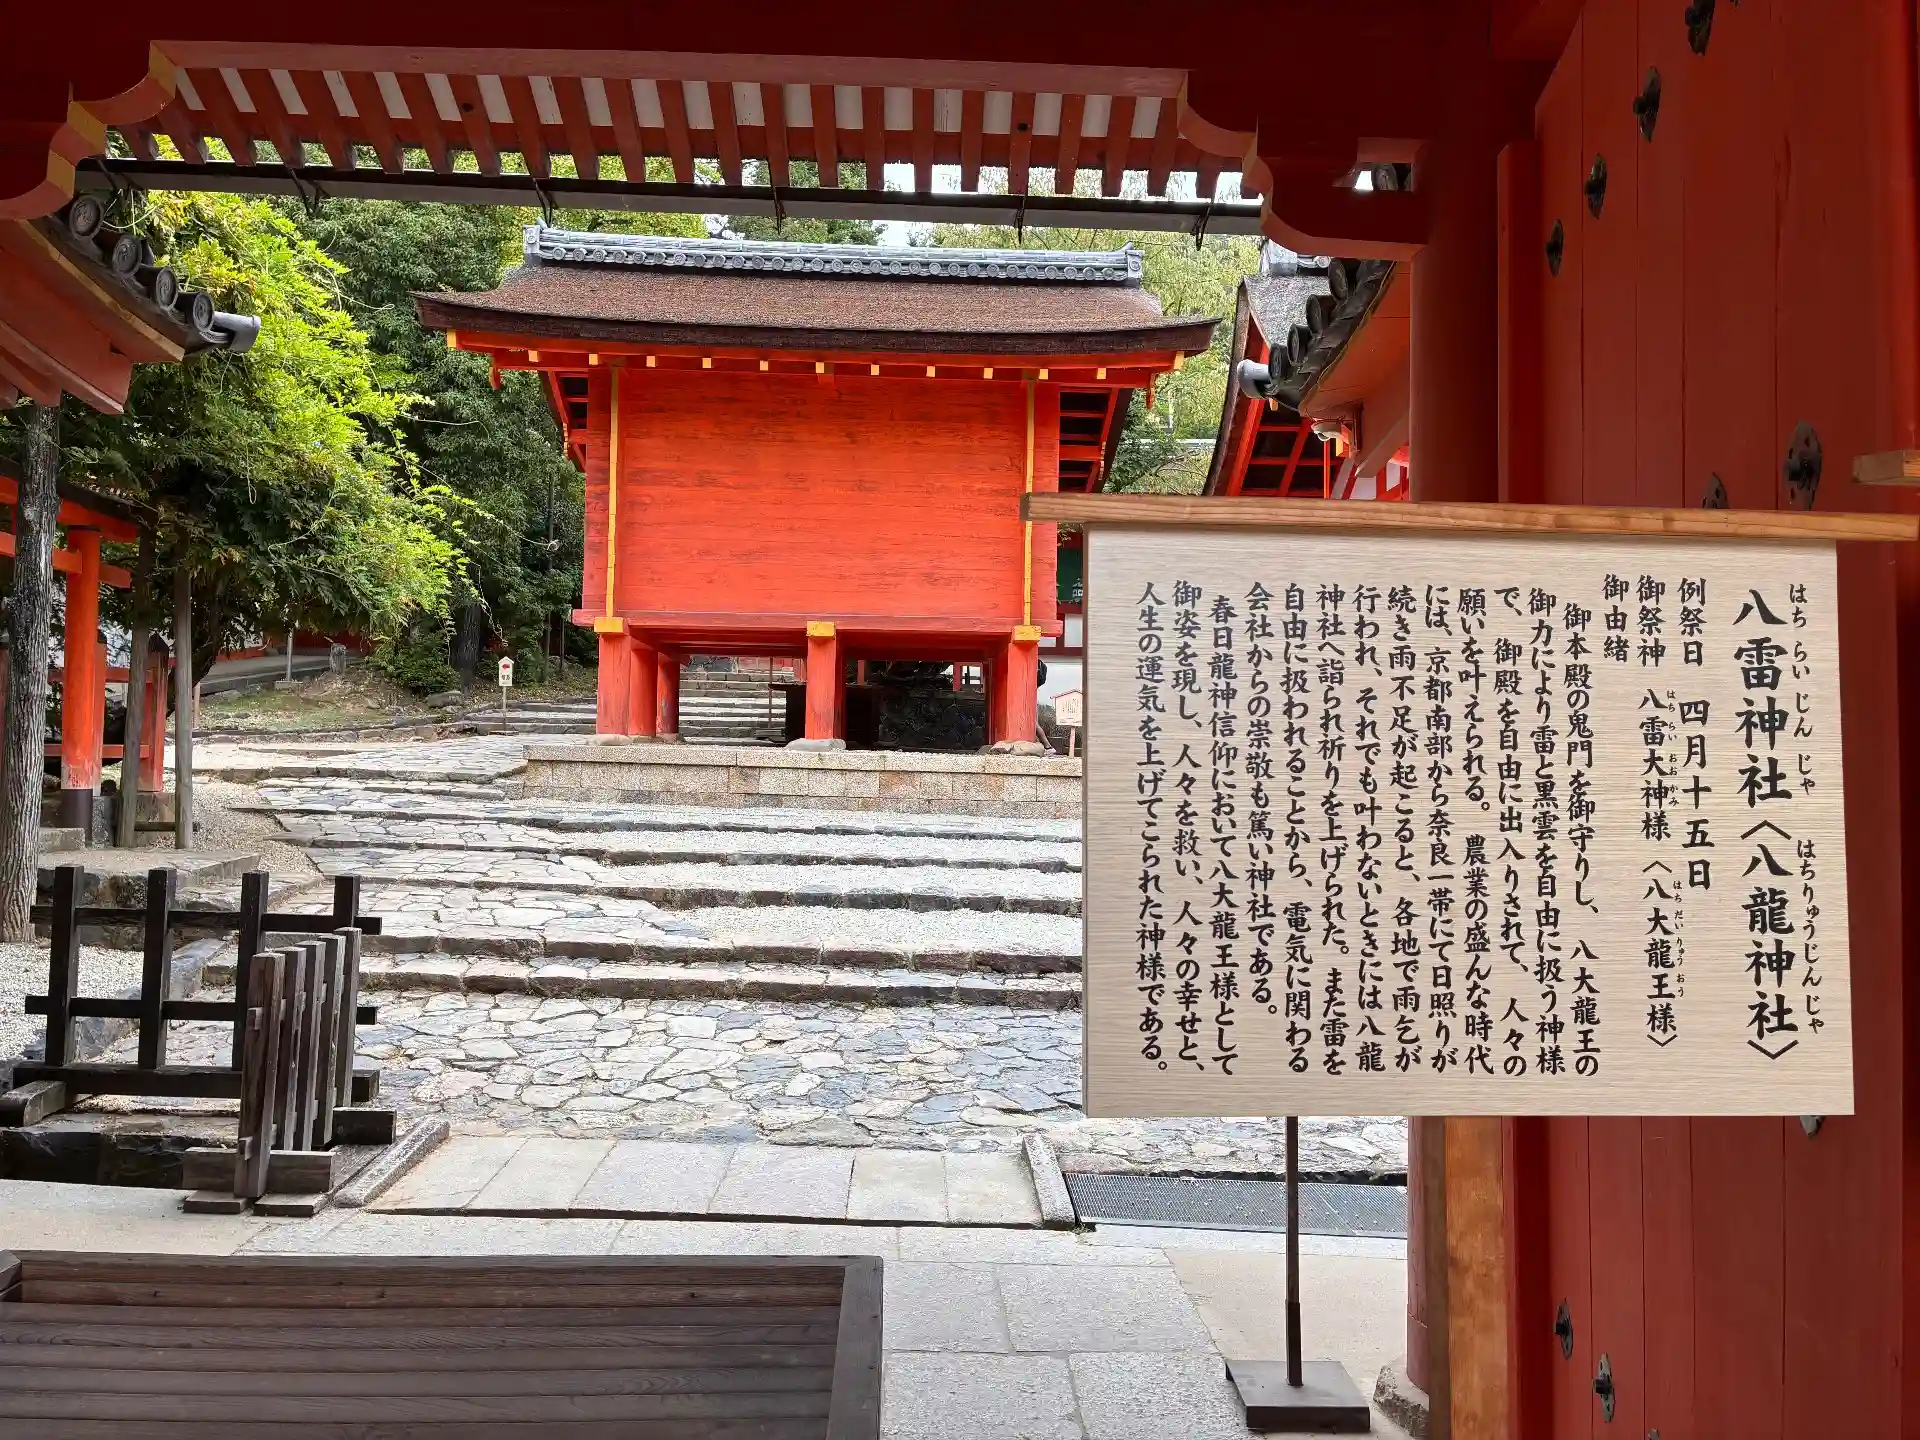 八雷神社〈八龍神社〉
はちらいじんじゃ はちりゅうじんじゃ
例祭日 四月十五日
御祭神 八雷大神様〈八大龍王様〉
はちらいおおかみ はちだいりゅうおう
御由緒
御本殿の鬼門を御守りし、八大龍王の
御力により雷と黒雲を自由に扱う神様
で、御殿を自由に出入りされて、人々の
願いを叶えられる。農業の盛んな時代
には、京都南部から奈良一帯にて日照りが
続き雨不足が起こると、各地で雨乞が
行われ、それでも叶わないときには八龍
神社へ詣られ祈りを上げられた。また雷を
自由に扱われることから、電気に関わる
会社からの崇敬も篤い神社である。
春日龍神信仰において八大龍王様として
御姿を現し、人々を救い、人々の幸せと、
人生の運気を上げてこられた神様である。